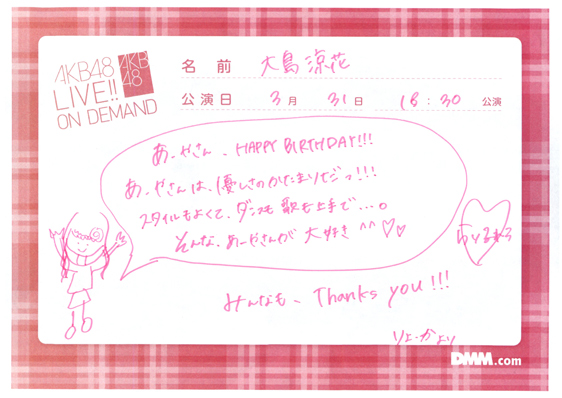 AKB48
LIVE!!
ON DEMAND
AKB
48
名前 大島涼花
公演日 3月 31日 18:30 公演
あーやさん、HAPPY BIRTHDAY!!!
あーやさんは、優しさのかたまりだっ!!!
スタイルもよくて、ダンスも歌も上手で...。
そんな、あーやさんが 大好き^^♡♡
みんなも、Thanks you!!!
りょーかより
DMM.com